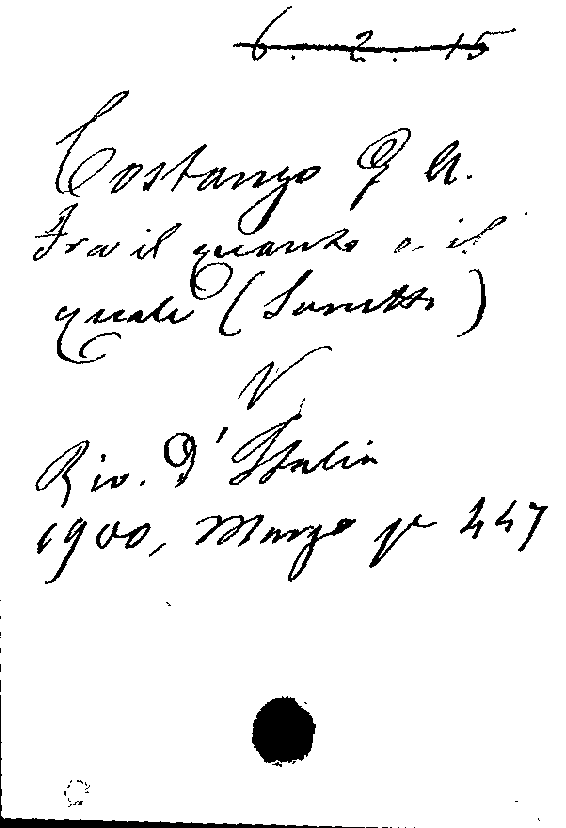 6. 2. 15
Costanzo G A.
Fra il quanto e il
quale (Sonetto)
V
Riv. d'Italia
1900, Marzo p 447